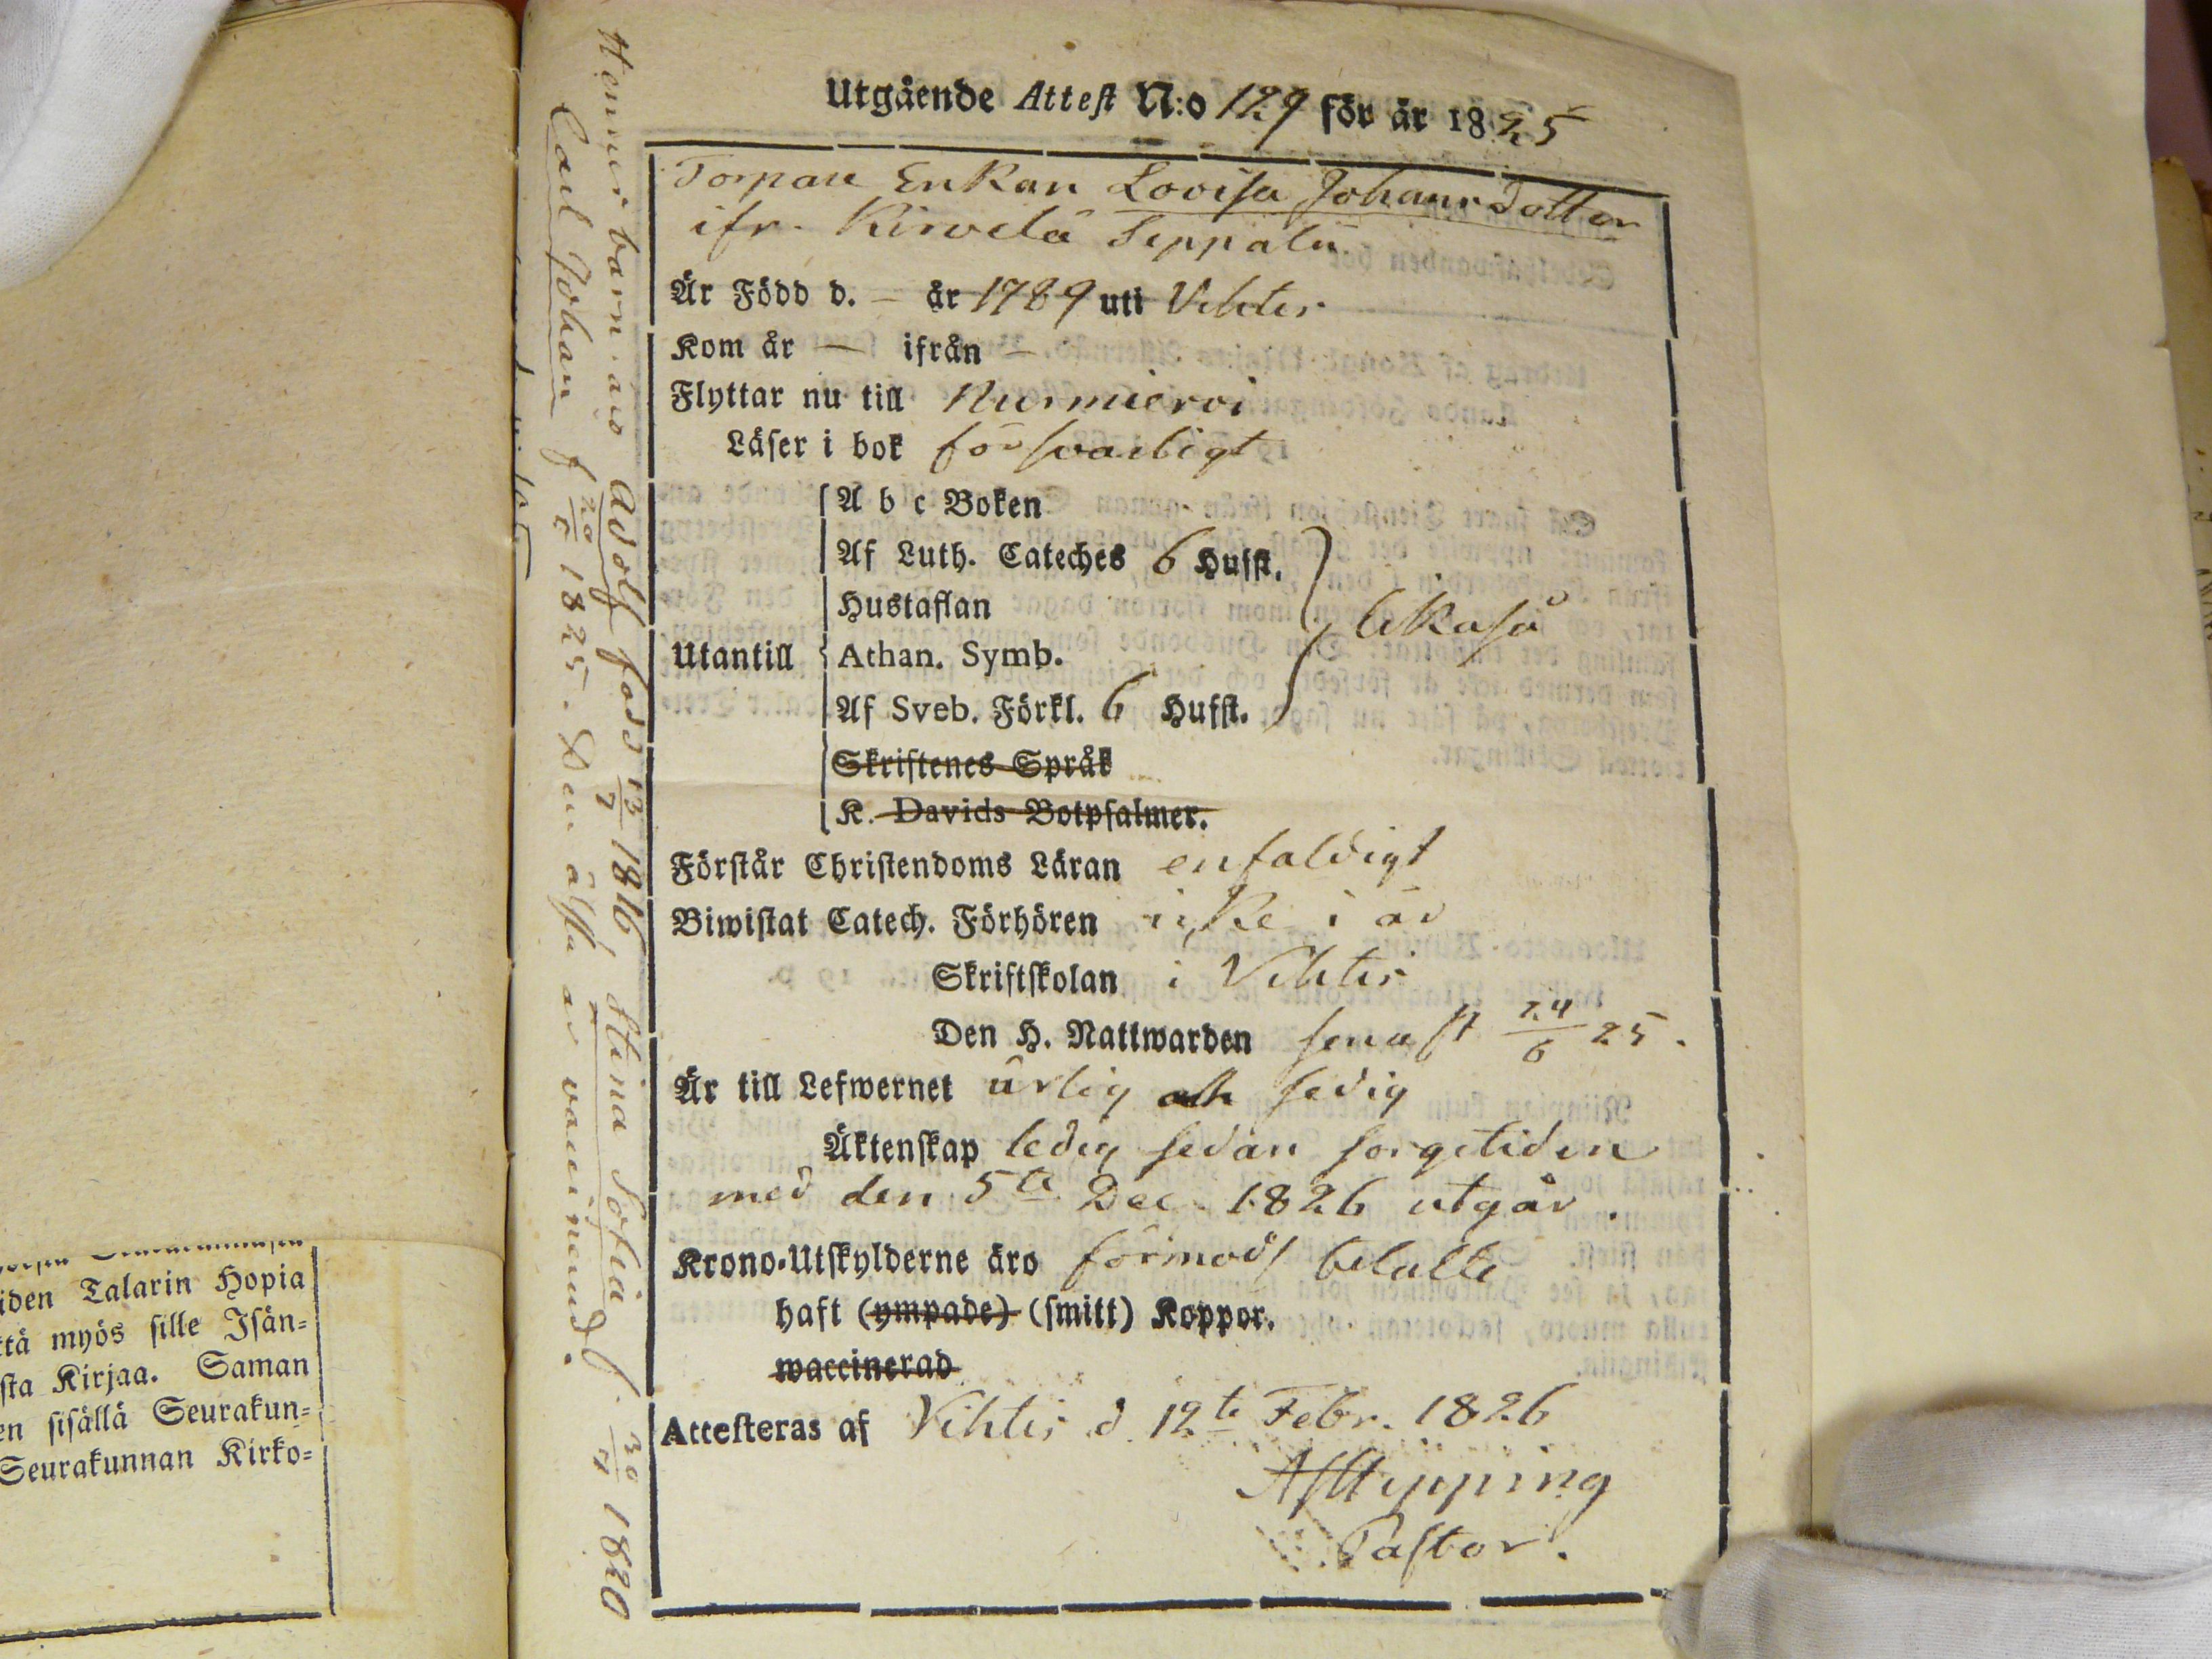 Utgående Attest N:o 129 för år 1825
Torpare Enkan Lovisa Johansdotter
ifr. Kirvelä Seppälä
Är Född d. — år 1789 uti Vihtis
Kom år — ifrån —
Flyttar nu till Nurmijervi
Läser i bok försvarligt
A b c Boken
Af Luth. Cateches 6 Hufst.
Hustaflan
likaså
Utantill Athan. Symb.
Af Sveb. Förkl. 6 Hufst.
Skriftenes Språk
K. Davids Botpsalmer.
Förstår Christendoms Läran enfaldigt
Biwistat Catech. Förhören icke i år
Skriftskolan i Vihtis
Den H. Nattwarden senast 24/6 25.
Är till Lefwernet ärlig och sedig
Äktenskap ledig sedan sorgetiden
med den 5te Dec. 1826 utgår.
Krono-Utskylderne äro förmodl betalte
haft (ympade) (smitt) Koppor.
waccinerad
Attesteras af Vihtis d. 12te Febr. 1826
Pastor.
Hennes barn äro Adolf född 13/7 1816 Stina Sofia f. 1820
Carl Johan f 1825. Den älsta är vaccinerad.
iden Talarin Hopia
ttä myös sille Isän=
sta Kirjaa. Saman
en sisällä Seurakun=
Seurakunnan Kirko=